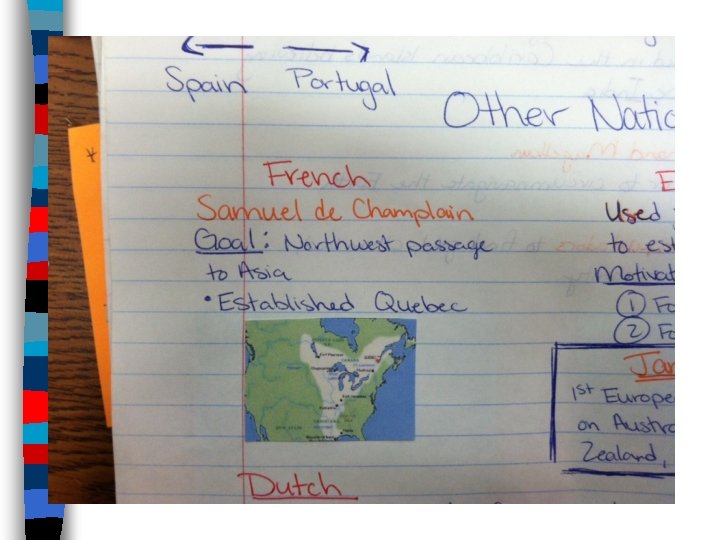 Spain Portugal
Other Natio
French
Samuel de Champlain
Goal: Northwest passage
to Asia
• Established Quebec
Dutch
E
Used
to est
Motivat
① Fo
② Fo
Jam
1st Europe
on Austra
Zealand,